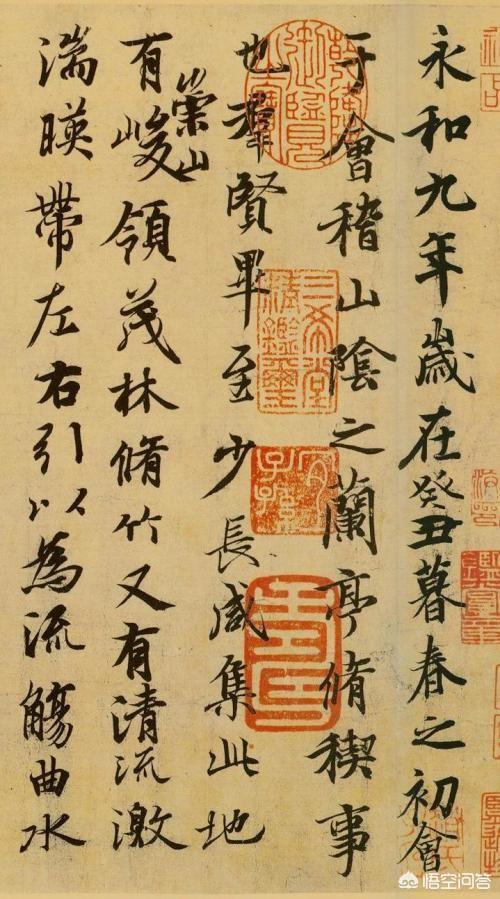 永和九年歲在癸丑暮春之初會
于會稽山陰之蘭亭脩稧事
也羣賢畢至少長咸集此地
有崇山峻領茂林脩竹又有清流激
湍暎帶左右引以為流觴曲水
三希堂精鑑璽
宜子孫
悟空问答